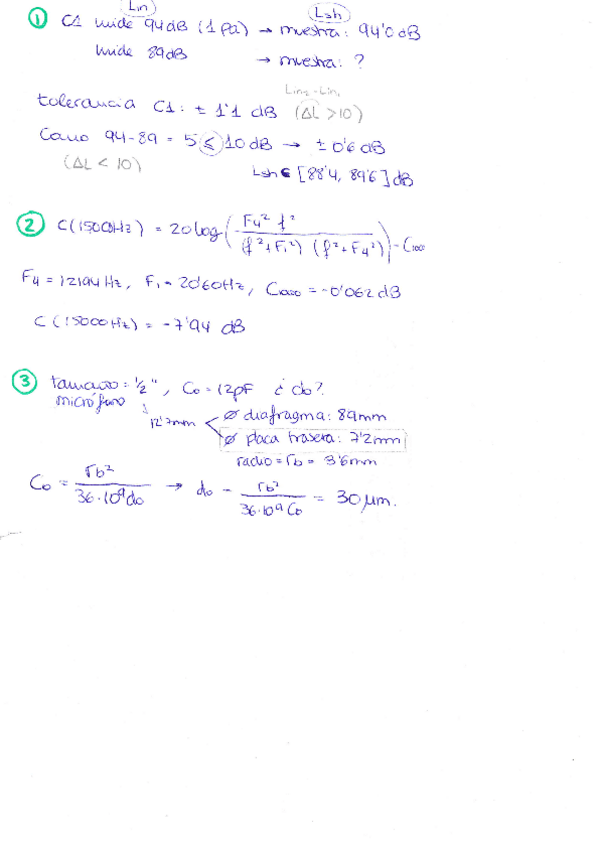 Lin
Lsh
① C1 mide 94dB (1 Pa) → muestra: 94'0 dB
mide 89dB → muestra: ?
Lin₂ - Lin₁
tolerancia C1: ± 1'1 dB (ΔL > 10)
Como 94-89 = 5 ≤ 10 dB → ± 0'6 dB
(ΔL < 10)
Lsh ∈ [88'4, 89'6] dB
② C(15000Hz) = 20 log (F₄² f² / (f²+F₁²) (f²+F₄²)) - C₁₀₀₀
F₄ = 12194 Hz, F₁ = 20'60Hz, C₁₀₀₀ = -0'062 dB
C (15000Hz) = -7'94 dB
③ tamaño = 1/2", C₀ = 12pF ¿ d₀?
micrófono
12'7mm
⌀ diafragma: 8'9mm
⌀ placa trasera: 7'2mm
radio = rb = 3'6mm
C₀ = rb² / 36·10⁹ d₀ → d₀ = rb² / 36·10⁹ C₀ = 30 μm.